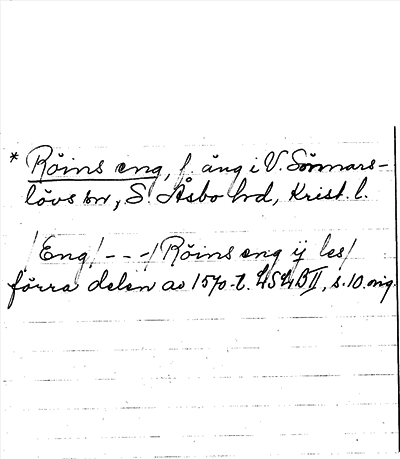 * Röins eng, f. äng i V. Sönnars-
lövs sn, S. Åsbo hd, Krist. l.
/Eng/ - - -/ Röins eng ij les/
förra delen av 1570-t. LSLB II, s. 10. orig.